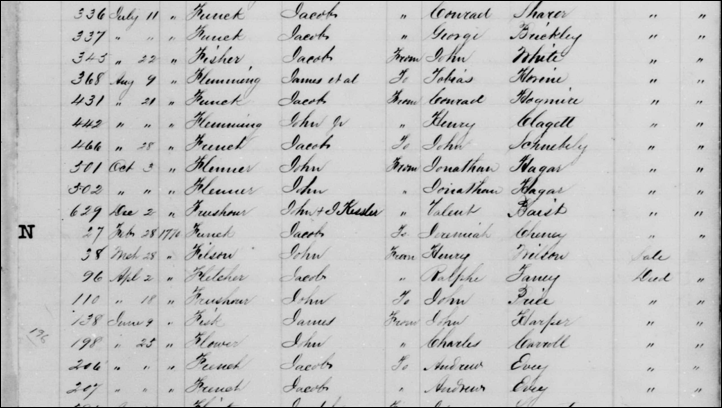 336 July 11 " Funck Jacob " Conrad Sharer " "
337 " " " Funck Jacob " George Brickley " "
345 " 22 " Fisher Jacob From John White " "
368 Aug 9 " Flemming James et al To Tobias Horine " "
431 " 21 " Funck Jacob From Conrad Hogmire " "
442 " " " Flemming John Jr " Henry Clagett " "
466 " 28 " Funck Jacob To John Schnebly " "
501 Oct 3 " Flenner John From Jonathan Hagar " "
502 " " " Flenner John " Jonathan Hagar " "
629 Dec 2 " Funshour John & J Kessler " Valent Barst " "
N 27 Feb 28 Funck Jacob To Jeremiah Cheney " "
38 Mch 28 " Filson John From Henry Wilson Sale "
96 Apl 2 " Fletcher Jacob " Ralphe Taney Deed "
110 " 18 " Funshour John To John Price " "
138 June 9 " Fisk James From John Harper " "
196
198 " 25 " Flower John " Charles Carroll " "
206 " " " Funck Jacob To Andrew Evey " "
207 " " " Funck Jacob " Andrew Evey " "